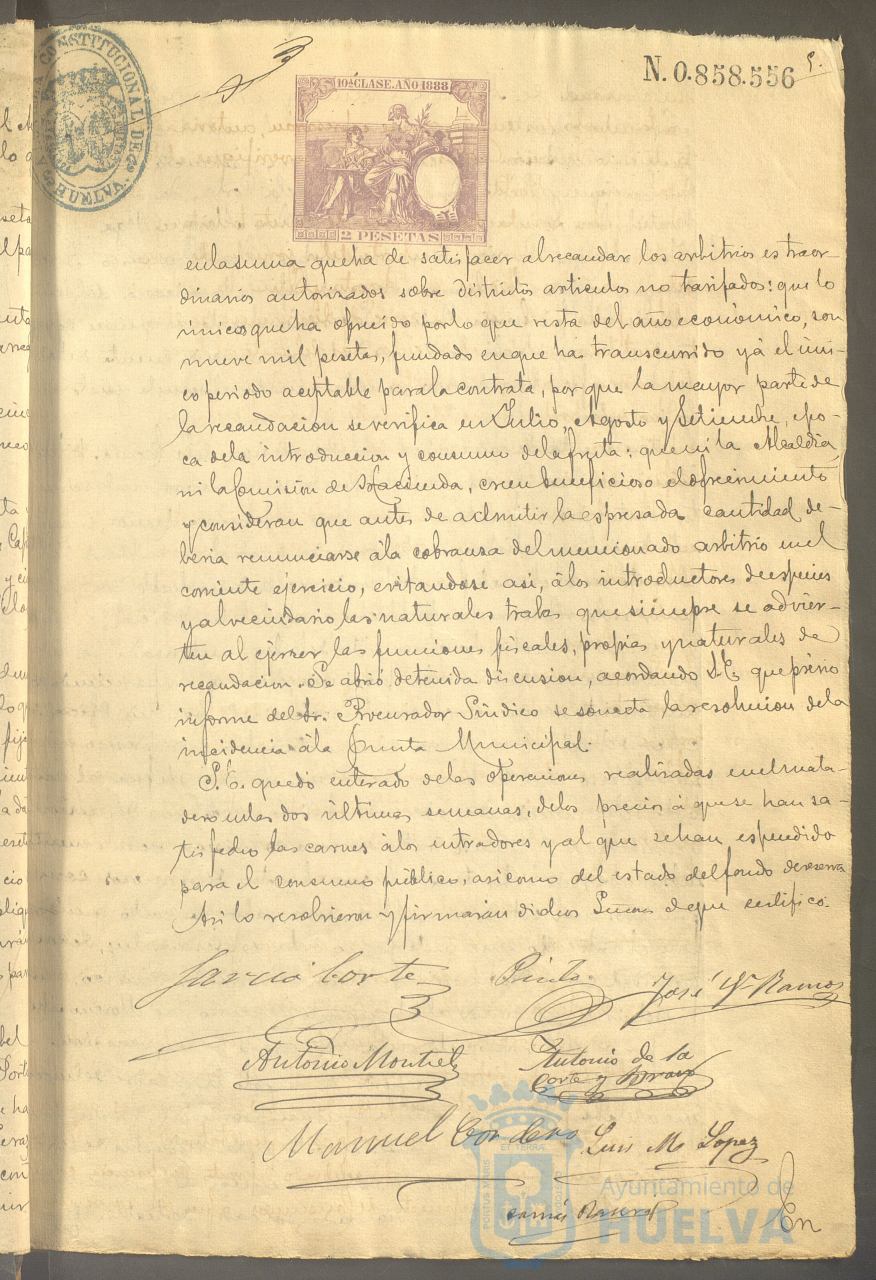 CONSTITUCIONAL DE
HUELVA
N. 0.858.556
5.
10ª CLASE. AÑO 1888
2 PESETAS
en la suma que ha de satisfacer al recaudar los arbitrios estraor-
dinarios autorizados sobre distintos articulos no tarifados: que lo
único que ha ofrecido por lo que resta del año económico, son
nueve mil pesetas, fundado en que ha transcurrido yá el úni-
co periodo aceptable para la contrata, por que la mayor parte de
la recaudacion se verifica en Julio, Agosto y Setiembre, epo-
ca de la introduccion y consumo de la fruta: que ni la Alcaldia,
ni la Comision de Hacienda, creen beneficioso el ofrecimiento
y consideran que antes de admitir la espresada cantidad de-
beria renunciarse á la cobransa del mencionado arbitrio en el
corriente ejercicio, evitandose asi, á los introductores de especies
y al vecindario las naturales trabas que siempre se advier-
ten al ejercer las funciones fiscales, propias y naturales de
recaudacion. Se abrió detenida discusion, acordando S. E. que prévio
informe del Sr. Procurador Síndico se someta la resolucion de la
incidencia á la Junta Municipal.
S. E. quedó enterado de las operaciones realizadas en el mata-
dero en las dos últimas semanas, de los precios á que se han sa-
tisfecho las carnes á los entradores y al que se han espendido
para el consumo público, asi como del estado del fondo de reserva
Asi lo resolvieron y firmarán dichos Señores de que certifico.
Garcia Corte
Pinto
José Gª Ramos
Antonio Montiel
Antonio de la
Corte y Bravo
Manuel Cordero
Luis M. Lopez
En
Ayuntamiento de
HUELVA